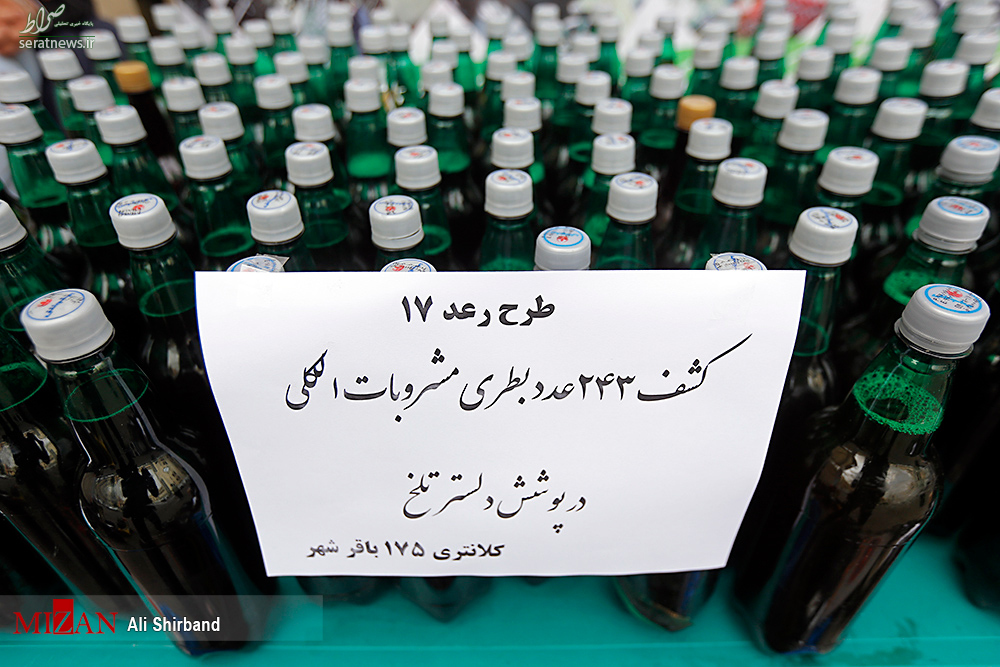 صراط
پایگاه خبری تحلیلی
seratnews.ir
طرح رعد ۱۷
کشف ۲۴۳عدد بطری مشروبات الکلی
در پوشش دلستر تلخ
کلانتری ۱۷۵ باقر شهر
MIZAN Ali Shirband